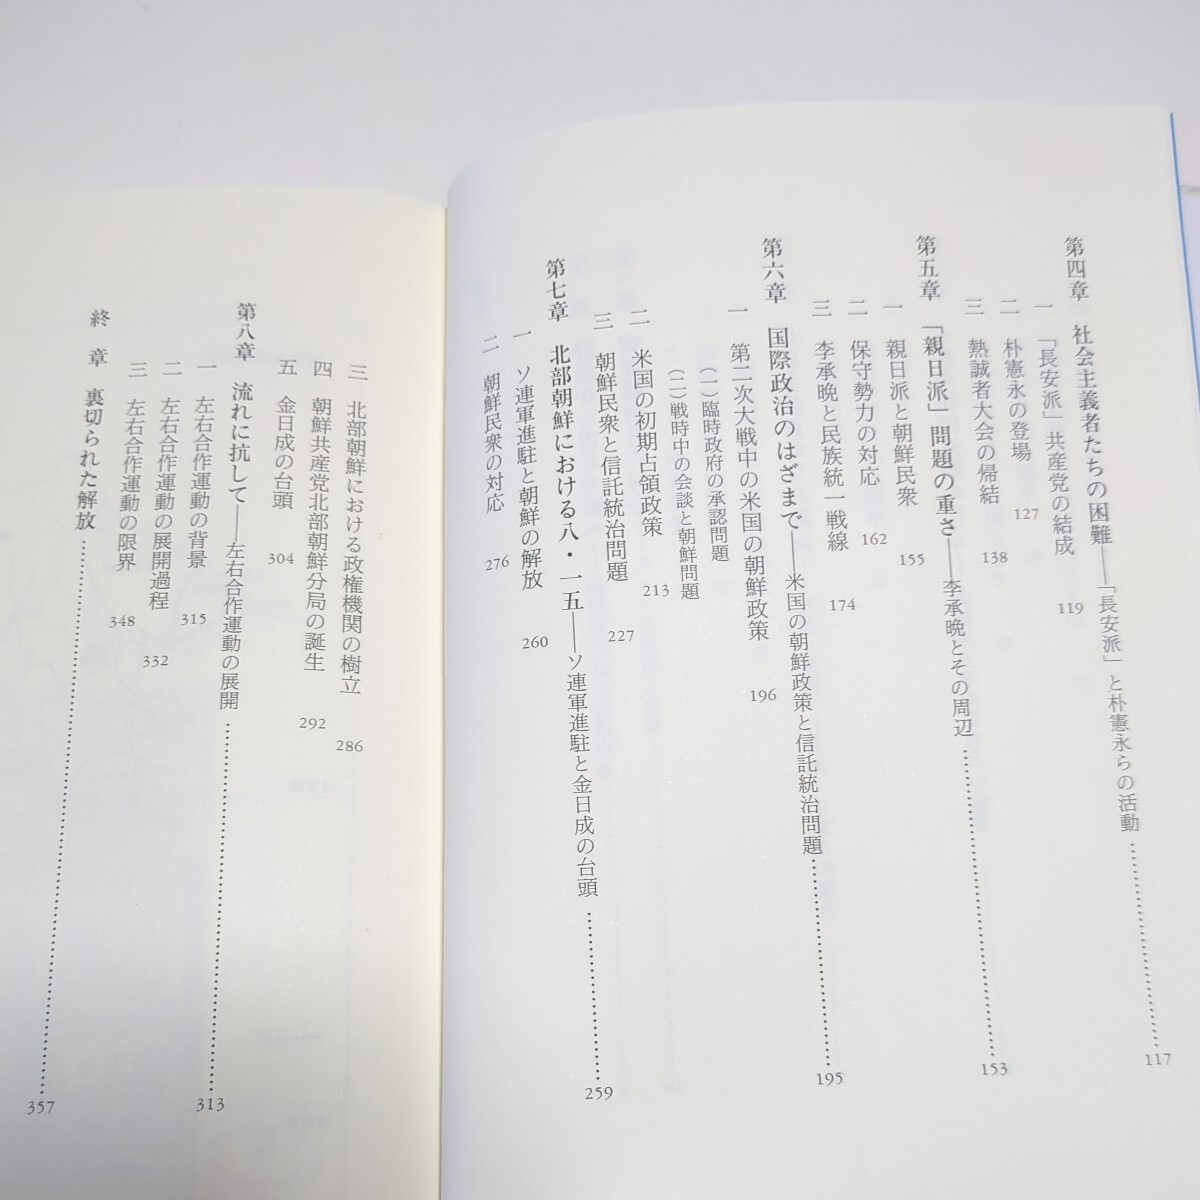 第四章 社会主義者たちの困難──「長安派」と朴憲永らの活動 117
一 「長安派」共産党の結成 119
二 朴憲永の登場 127
三 熱誠者大会の帰結 138
第五章 「親日派」問題の重さ──李承晩とその周辺 153
一 親日派と朝鮮民衆 155
二 保守勢力の対応 162
三 李承晩と民族統一戦線 174
第六章 国際政治のはざまで──米国の朝鮮政策と信託統治問題 195
一 第二次大戦中の米国の朝鮮政策 196
(一)臨時政府の承認問題
(二)戦時中の会談と朝鮮問題
二 米国の初期占領政策 213
三 朝鮮民衆と信託統治問題 227
第七章 北部朝鮮における八・一五──ソ連軍進駐と金日成の台頭 259
一 ソ連軍進駐と朝鮮の解放 260
二 朝鮮民衆の対応 276
三 北部朝鮮における政権機関の樹立 286
四 朝鮮共産党北部朝鮮分局の誕生 292
五 金日成の台頭 304
第八章 流れに抗して──左右合作運動の展開 313
一 左右合作運動の背景 315
二 左右合作運動の展開過程 332
三 左右合作運動の限界 348
終章 裏切られた解放 357